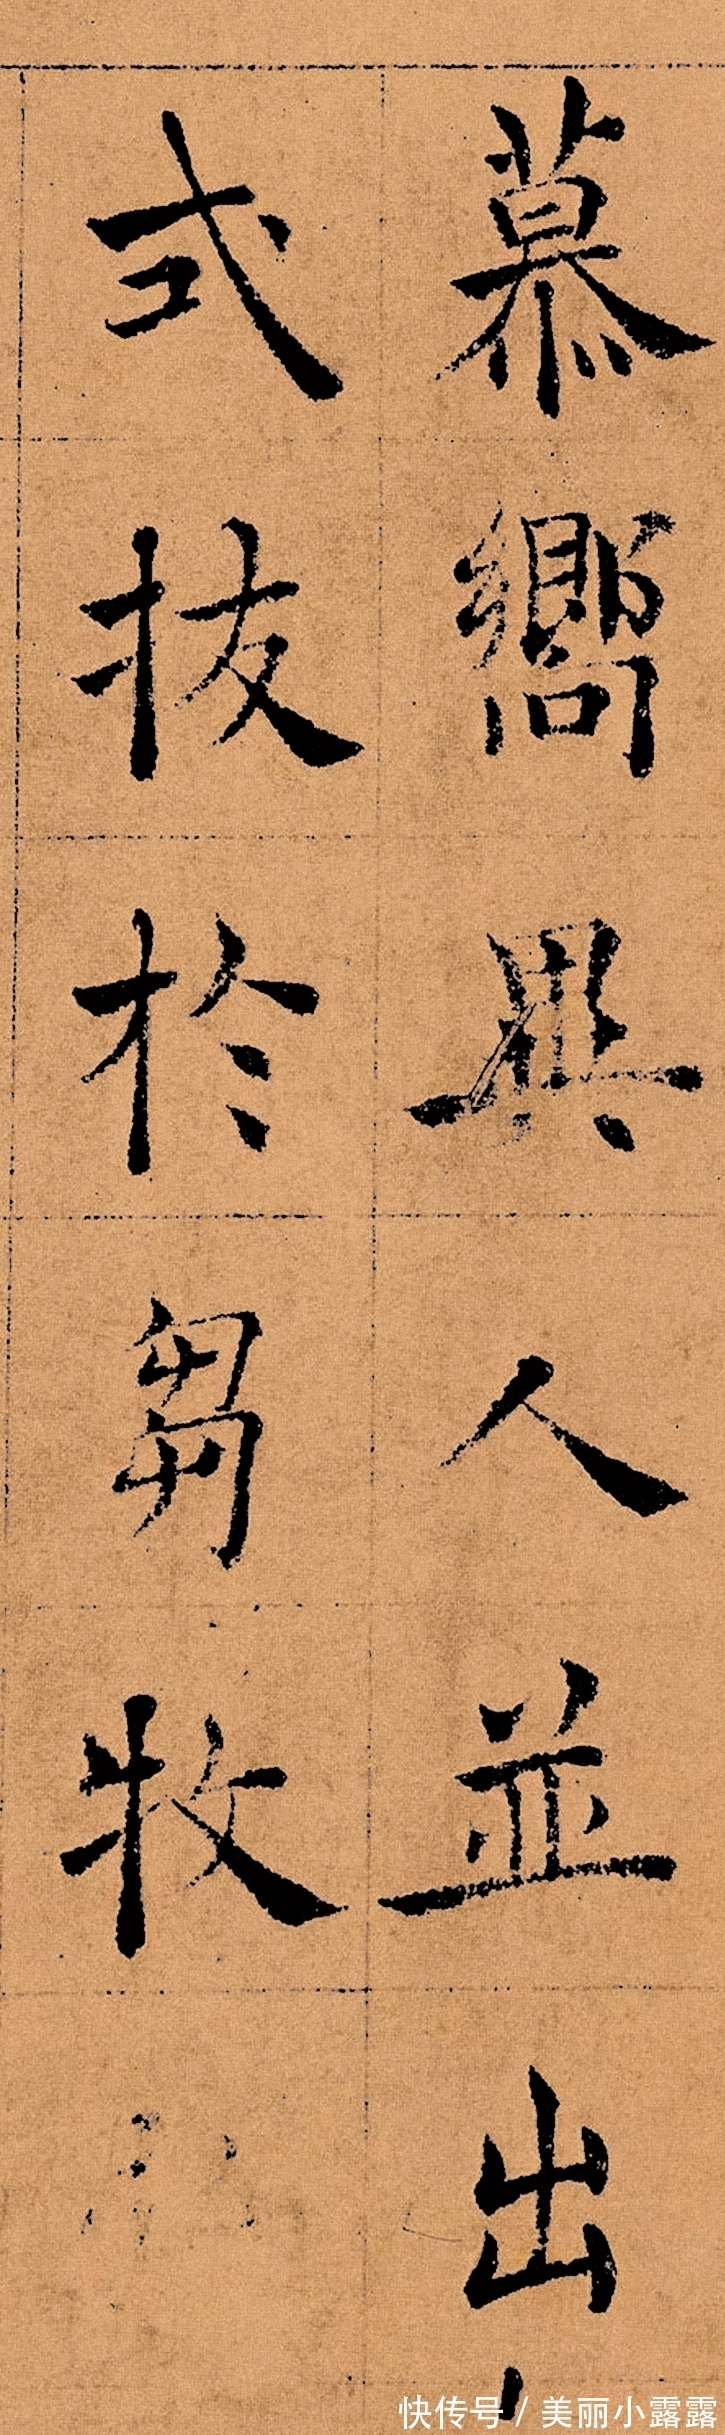 慕嚮異人並出
式拔於芻牧
快传号 / 美丽小露露